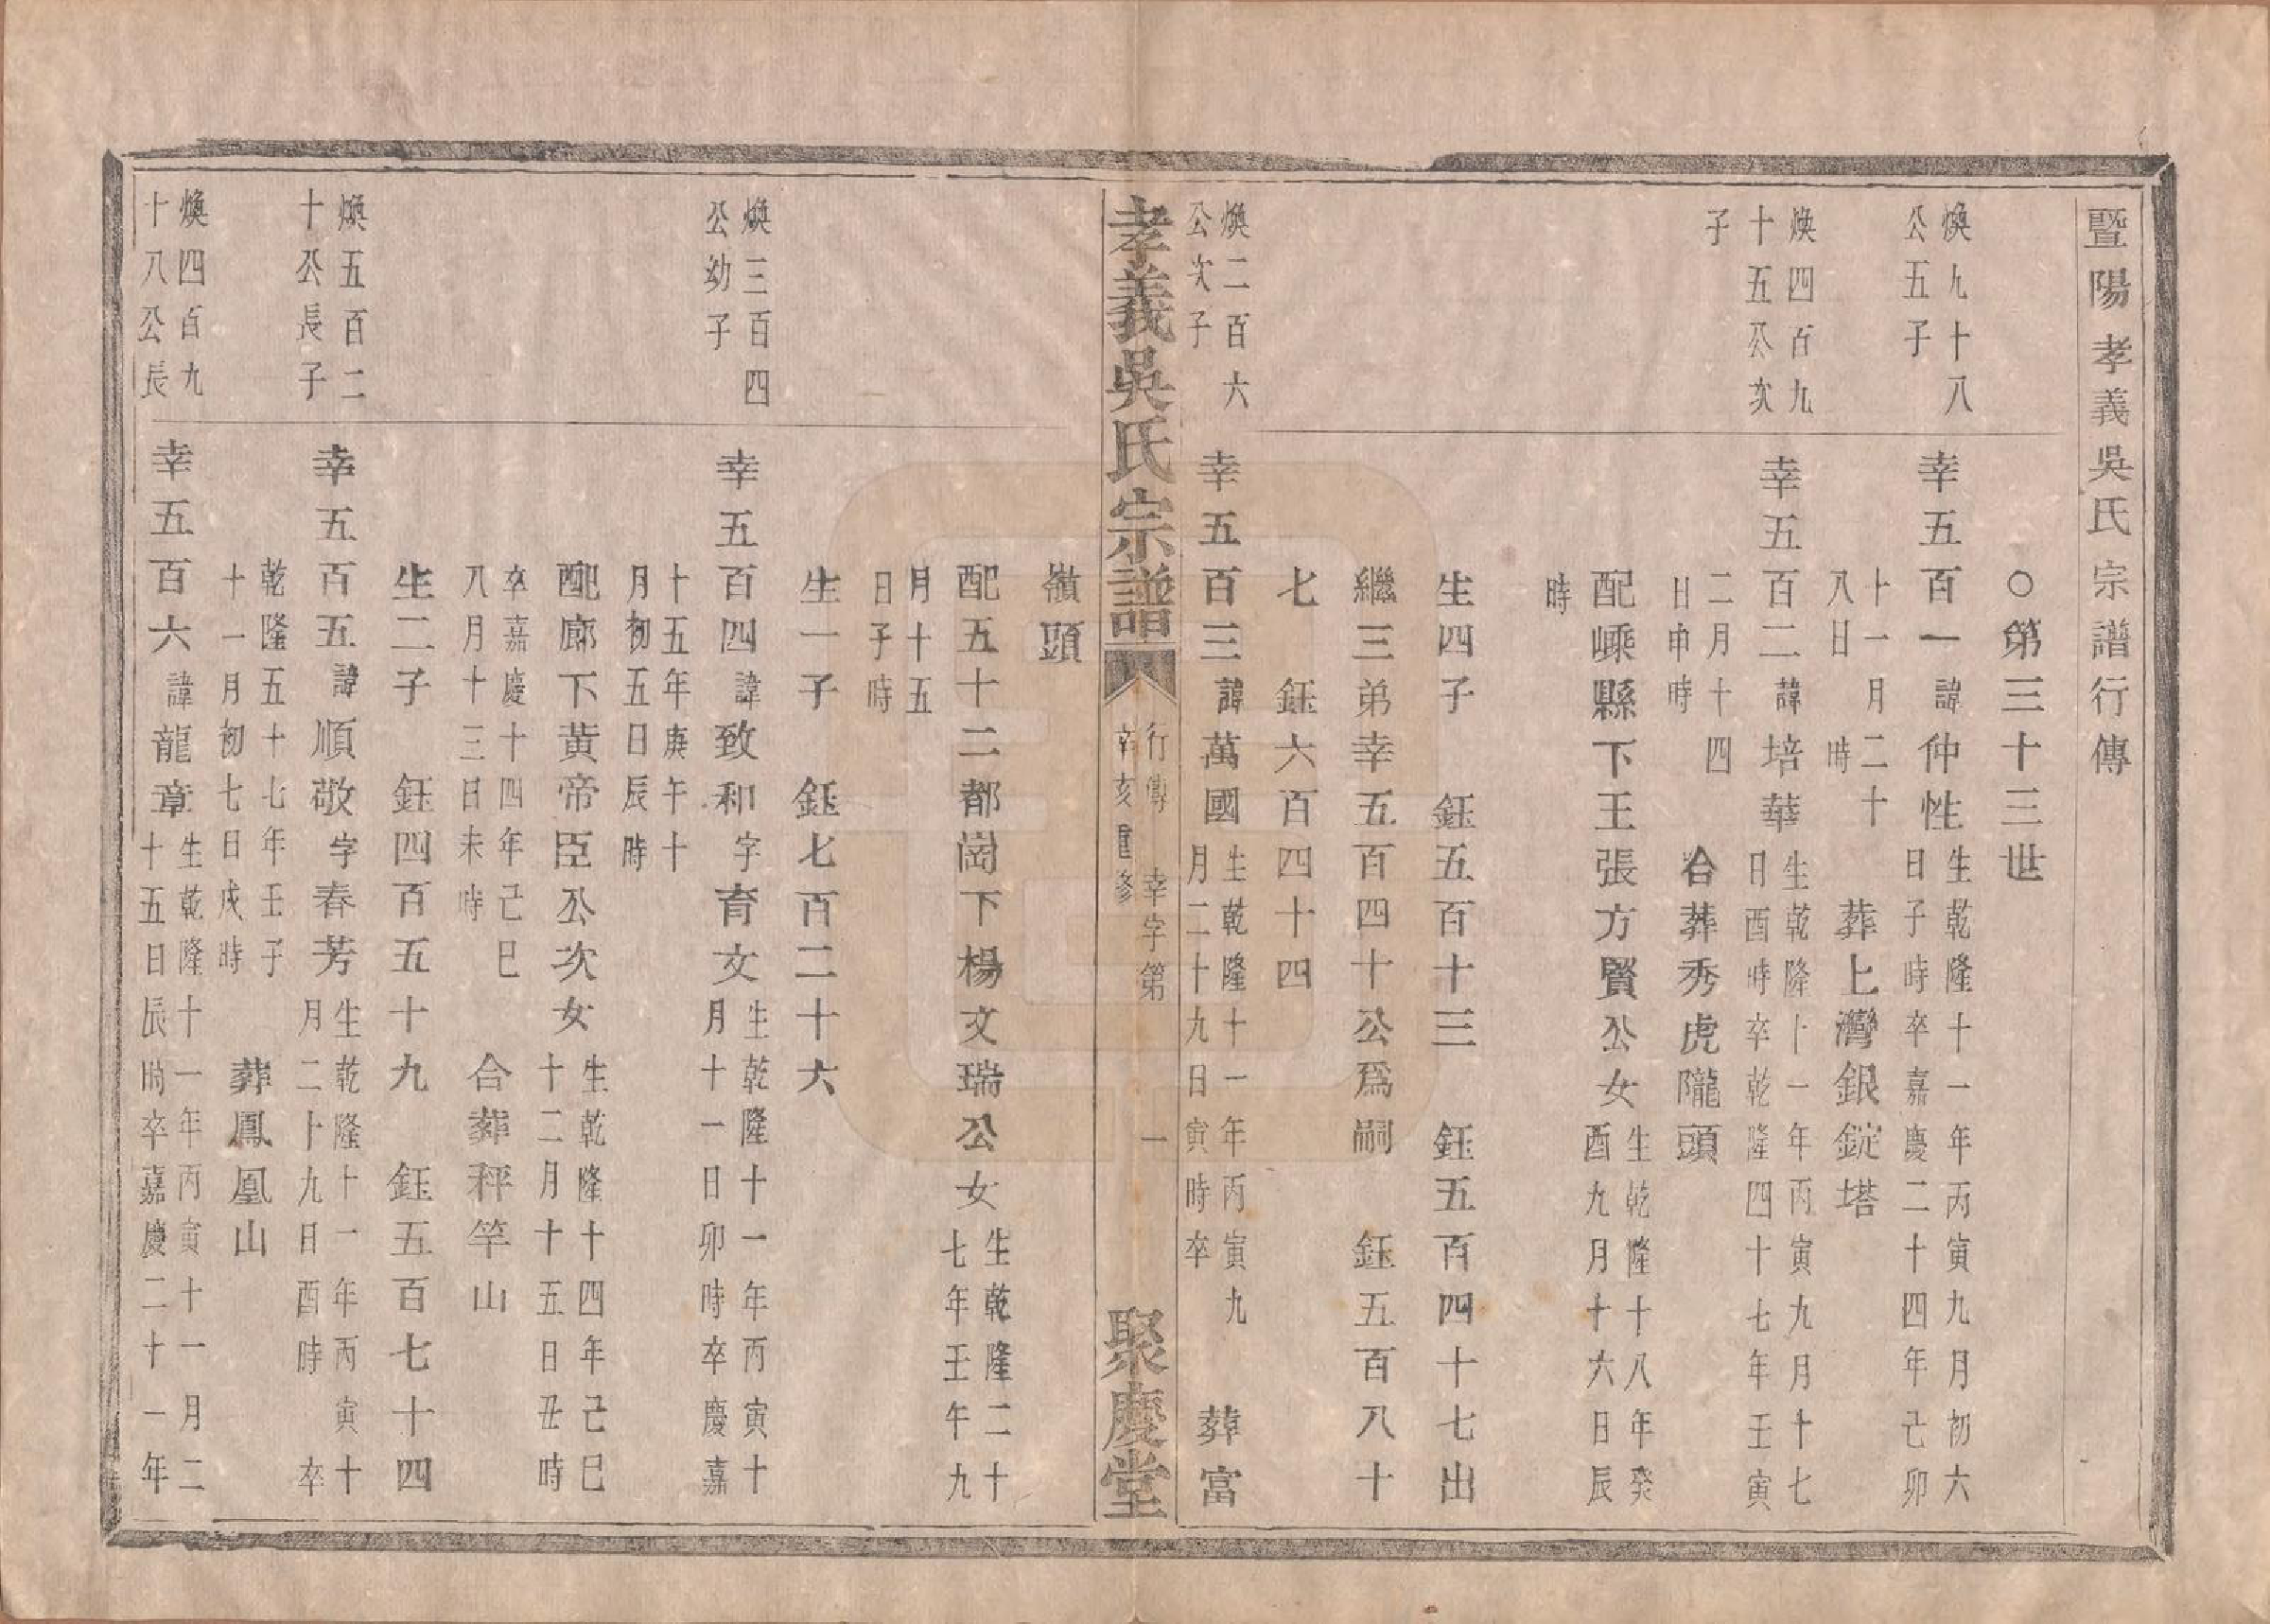 暨陽孝義吳氏宗譜行傳
○第三十三世
煥九十八
公五子
幸五百一諱仲性
生乾隆十一年丙寅九月初六
日子時卒嘉慶二十四年己卯
十一月二十
八日 時
葬上灣銀錠塔
煥四百九
十五公次
子
幸五百二諱培華
生乾隆十一年丙寅九月十七
日酉時卒乾隆四十七年壬寅
二月十四
日申時
合葬秀虎隴頭
配嵊縣下王張方賢公女
生乾隆十八年癸
酉九月十六日辰
時
生四子 鈺五百十三 鈺五百四十七出
繼三弟幸五百四十公爲嗣 鈺五百八十
七 鈺六百四十四
煥二百六
公次子
幸五百三諱萬國
生乾隆十一年丙寅九
月二十九日寅時卒
葬富
孝義吳氏宗譜
行傳 幸字第 一
辛亥重修
聚慶堂
嶺頭
配五十二都崗下楊文瑞公女
生乾隆二十
七年壬午九
月十五
日子時
生一子 鈺七百二十六
煥三百四
公幼子
幸五百四諱致和字育文
生乾隆十一年丙寅十
月十一日卯時卒慶嘉
十五年庚午十
月初五日辰時
配廊下黃帝臣公次女
生乾隆十四年己巳
十二月十五日丑時
卒嘉慶十四年己巳
八月十三日未時
合葬秤竿山
生二子 鈺四百五十九 鈺五百七十四
煥五百二
十公長子
幸五百五諱順敬字春芳
生乾隆十一年丙寅十
月二十九日酉時 卒
乾隆五十七年壬子
十一月初七日戌時
葬鳳凰山
煥四百九
十八公長
幸五百六諱龍章
生乾隆十一年丙寅十一月二
十五日辰時卒嘉慶二十一年